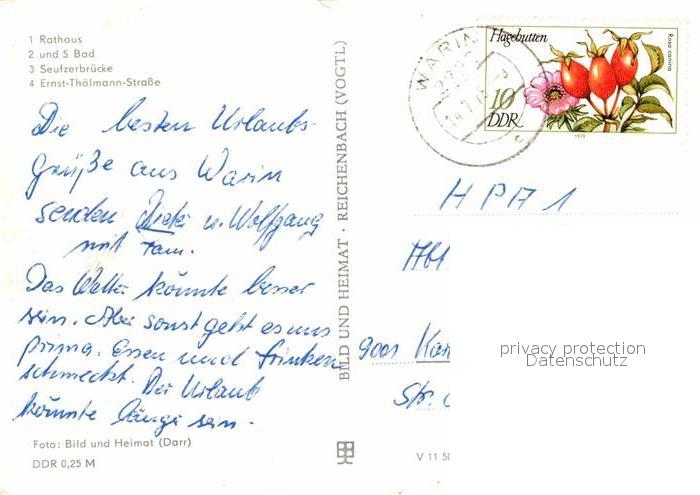 1 Rathaus
2 und 5 Bad
3 Seufzerbrücke
4 Ernst-Thälmann-Straße
Die besten Urlaubs-
grüße aus Warin
senden Dieter u. Wolfgang
mit Fam.
Das Wetter könnte besser
sein. Aber sonst geht es uns
prima. Essen und trinken
schmeckt. Der Urlaub
könnte länger sein.
Foto: Bild und Heimat (Darr)
DDR 0,25 M
BILD UND HEIMAT · REICHENBACH (VOGTL)
WARIN
Hagebutten
Rosa canina
10
DDR
HPA 1
Abt
9001 Kar
Str.
privacy protection
Datenschutz
V 11 50